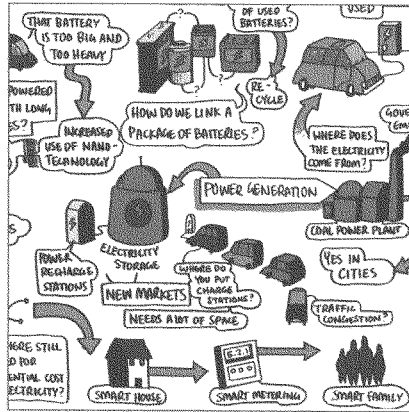 THAT BATTERY
IS TOO BIG AND
TOO HEAVY
?
?
?
?
OF USED
BATTERIES?
USED
POWERED
TH LONG
S?
INCREASED
USE OF NANO-
TECHNOLOGY
HOW DO WE LINK A
PACKAGE OF BATTERIES?
RE-
CYCLE
WHERE DOES
THE ELECTRICITY
COME FROM?
GOVE
POWER GENERATION
COAL POWER PLANT
ELECTRICITY
STORAGE
POWER
RECHARGE
STATIONS
WHERE DO
YOU PUT
CHARGE
STATIONS?
YES IN
CITIES
NEW MARKETS
NEEDS A LOT OF SPACE
TRAFFIC
CONGESTION?
HERE STILL
D FOR
ENTIAL COST
ELECTRICITY?
SMART HOUSE
SMART METERING
SMART FAMILY